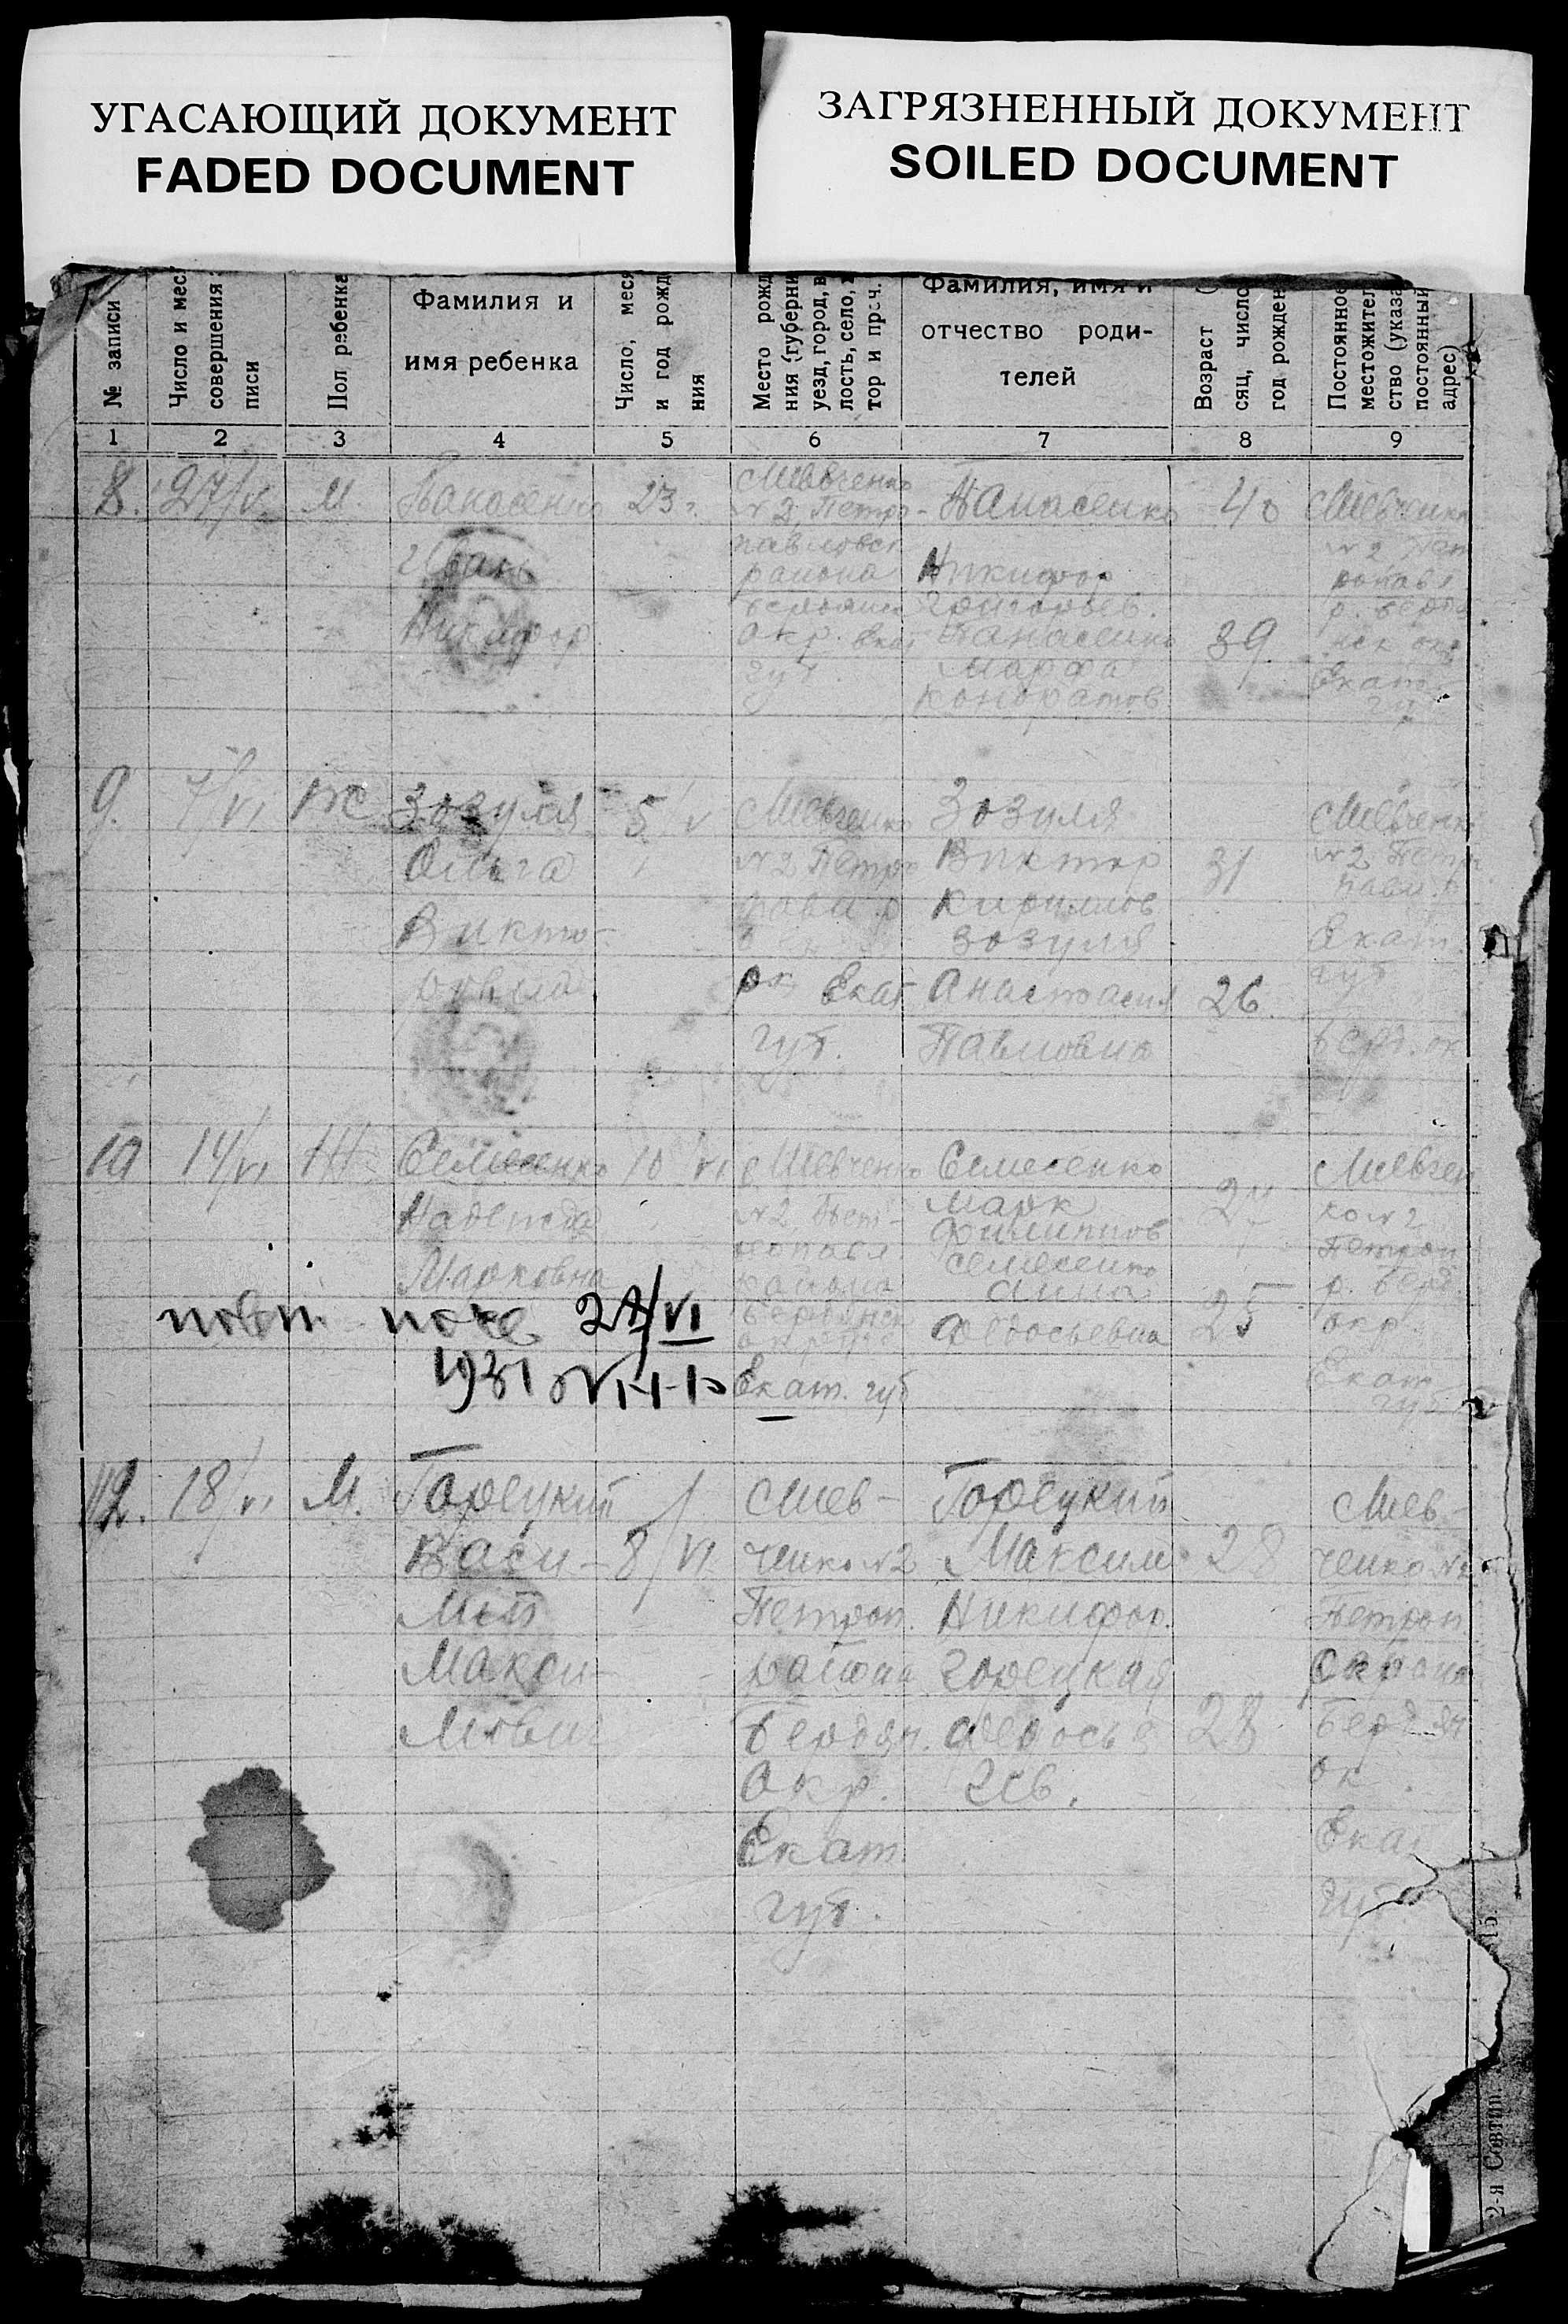 УГАСАЮЩИЙ ДОКУМЕНТ
FADED DOCUMENT
ЗАГРЯЗНЕННЫЙ ДОКУМЕНТ
SOILED DOCUMENT
№ записи
Число и мес
совершения
писи
Пол ребенка
Фамилия и
имя ребенка
Число, меся
и год рожд
ния
Место рожд
ния (губерни
уезд, город, в
лость, село,
тор и проч.
Фамилия, имя и
отчество роди-
телей
Возраст (
сяц, число
год рожден
Постоянное
местожител
ство (указа
постоянный
адрес)
1 2 3 4 5 6 7 8 9
8. 27/V. М. Панасенко 23.
Иван
Никифор
Шевченко
№2, Петро-
павловск
района
Бердянск
окр. Екат
губ.
Панасенко
Никифор
Григорьев.
Панасенко
Марфа
Кондратов
40
39
Шевченко
№2 Пет
ропавл
р. Бердя
нск окр
Екат
губ
9. 7/VI Ж Зозуля 5/V
Ольга
Викто-
ровна
Шевченко
№2 Петро
павл р
ок Екат
губ.
Зозуля
Виктор
Кирилов
Зозуля
Анастасия
Павловна
31
26
Шевченко
№2 Петр
павл. р
Екат
губ
Берд. ок
10 14/VI Ж Семесенко 10 VI
Надежда
Марковна
с Шевченко
№2, Пет-
ропавл
района
Бердянск
Екат. губ
Семесенко
Марк
Филиппов
Семесенко
Анна
Федосьевна
24
25
Шевчен
ко №2
Петроп
р. Берд
окр.
Екат
губ
28/VI
1931
12. 18/VI М. Горецкий
Васи- 8/VI
лий
Макси-
мович
Шев-
ченко №2
Петроп.
района
Бердян.
Окр.
Екат
губ.
Горецкий
Максим
Никифор.
Горецкая
Федосья
Ив.
28
28
Шев-
ченко №2
Петроп
района
Бердян
ок.
Екат
губ.
2-я Совтип.